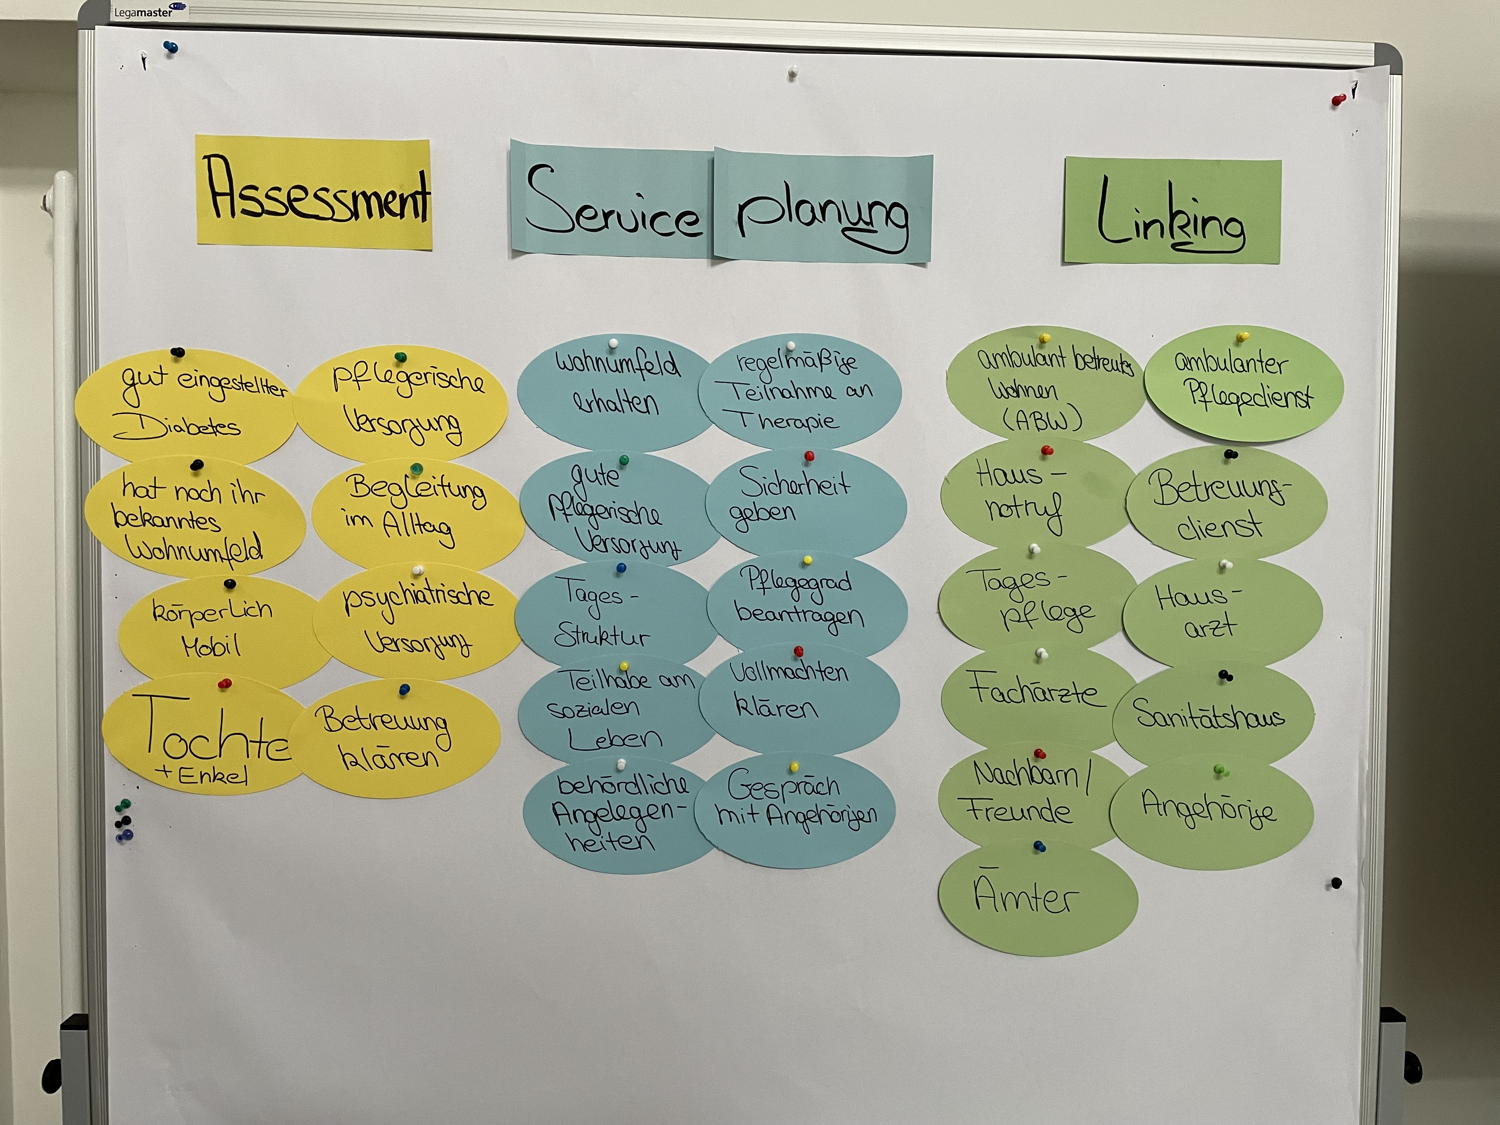 Legamaster
Assessment
gut eingestellter
Diabetes
pflegerische
Versorgung
hat noch ihr
bekanntes
Wohnumfeld
Begleitung
im Alltag
körperlich
Mobil
psychiatrische
Versorgung
Tochte
+ Enkel
Betreuung
klären
Service planung
Wohnumfeld
erhalten
regelmäßige
Teilnahme an
Therapie
gute
pflegerische
Versorgung
Sicherheit
geben
Tages-
Struktur
Pflegegrad
beantragen
Teilhabe am
sozialen
Leben
Vollmachten
klären
behördliche
Angelegen-
heiten
Gespräch
mit Angehörigen
Linking
ambulant betreutes
Wohnen
(ABW)
ambulanter
Pflegedienst
Haus-
notruf
Betreuungs-
dienst
Tages-
pflege
Haus-
arzt
Fachärzte
Sanitätshaus
Nachbarn/
Freunde
Angehörige
Ämter